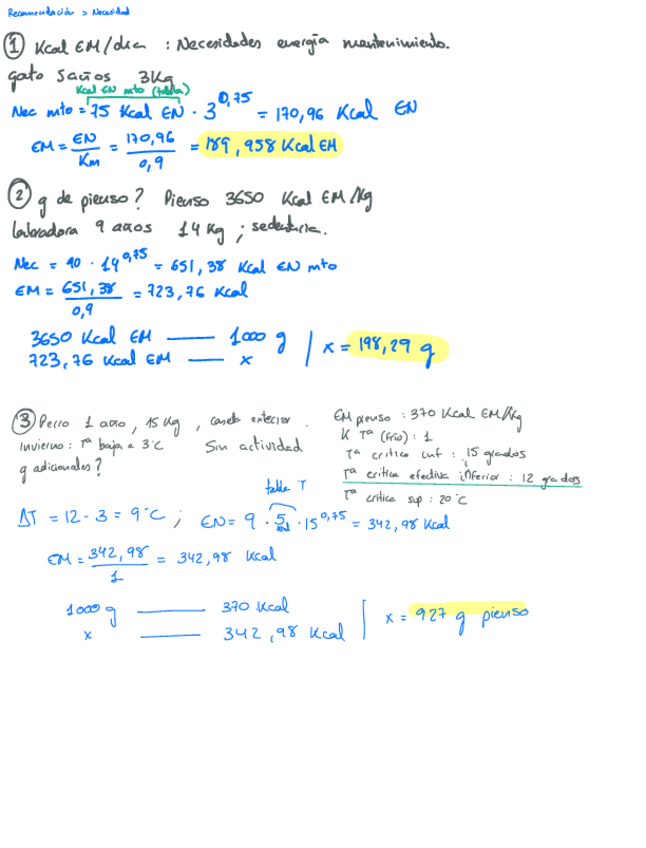 Recomendación > Necesidad
① Kcal EM/día : Necesidades energía mantenimiento.
gato 5 años 3Kg
Kcal EN mto (tabla)
Nec mto = 75 Kcal EN · 3^0,75 = 170,96 Kcal EN
EM = EN/Km = 170,96/0,9 = 189,958 Kcal EM
② g de pienso? Pienso 3650 Kcal EM/Kg
labradora 9 años 14 Kg ; sedentaria.
Nec = 90 · 14^0,75 = 651,38 Kcal EN mto
EM = 651,38/0,9 = 723,76 Kcal
3650 Kcal EM —— 1000 g
723,76 Kcal EM —— x | x = 198,29 g
③ Perro 1 año, 15 Kg, caseta exterior.
Invierno : Tª baja a 3ºC Sin actividad
g adicionales?
EM pienso : 370 Kcal EM/Kg
K Tª (frío) : 1
Tª critica inf : 15 grados
Tª critica efectiva inferior : 12 grados
Tª critica sup : 20ºC
tabla T
ΔT = 12 - 3 = 9ºC ; EN = 9 · 5 · 15^0,75 = 342,98 Kcal
EM = 342,98/1 = 342,98 Kcal
1000 g —— 370 Kcal
x —— 342,98 Kcal | x = 927 g pienso